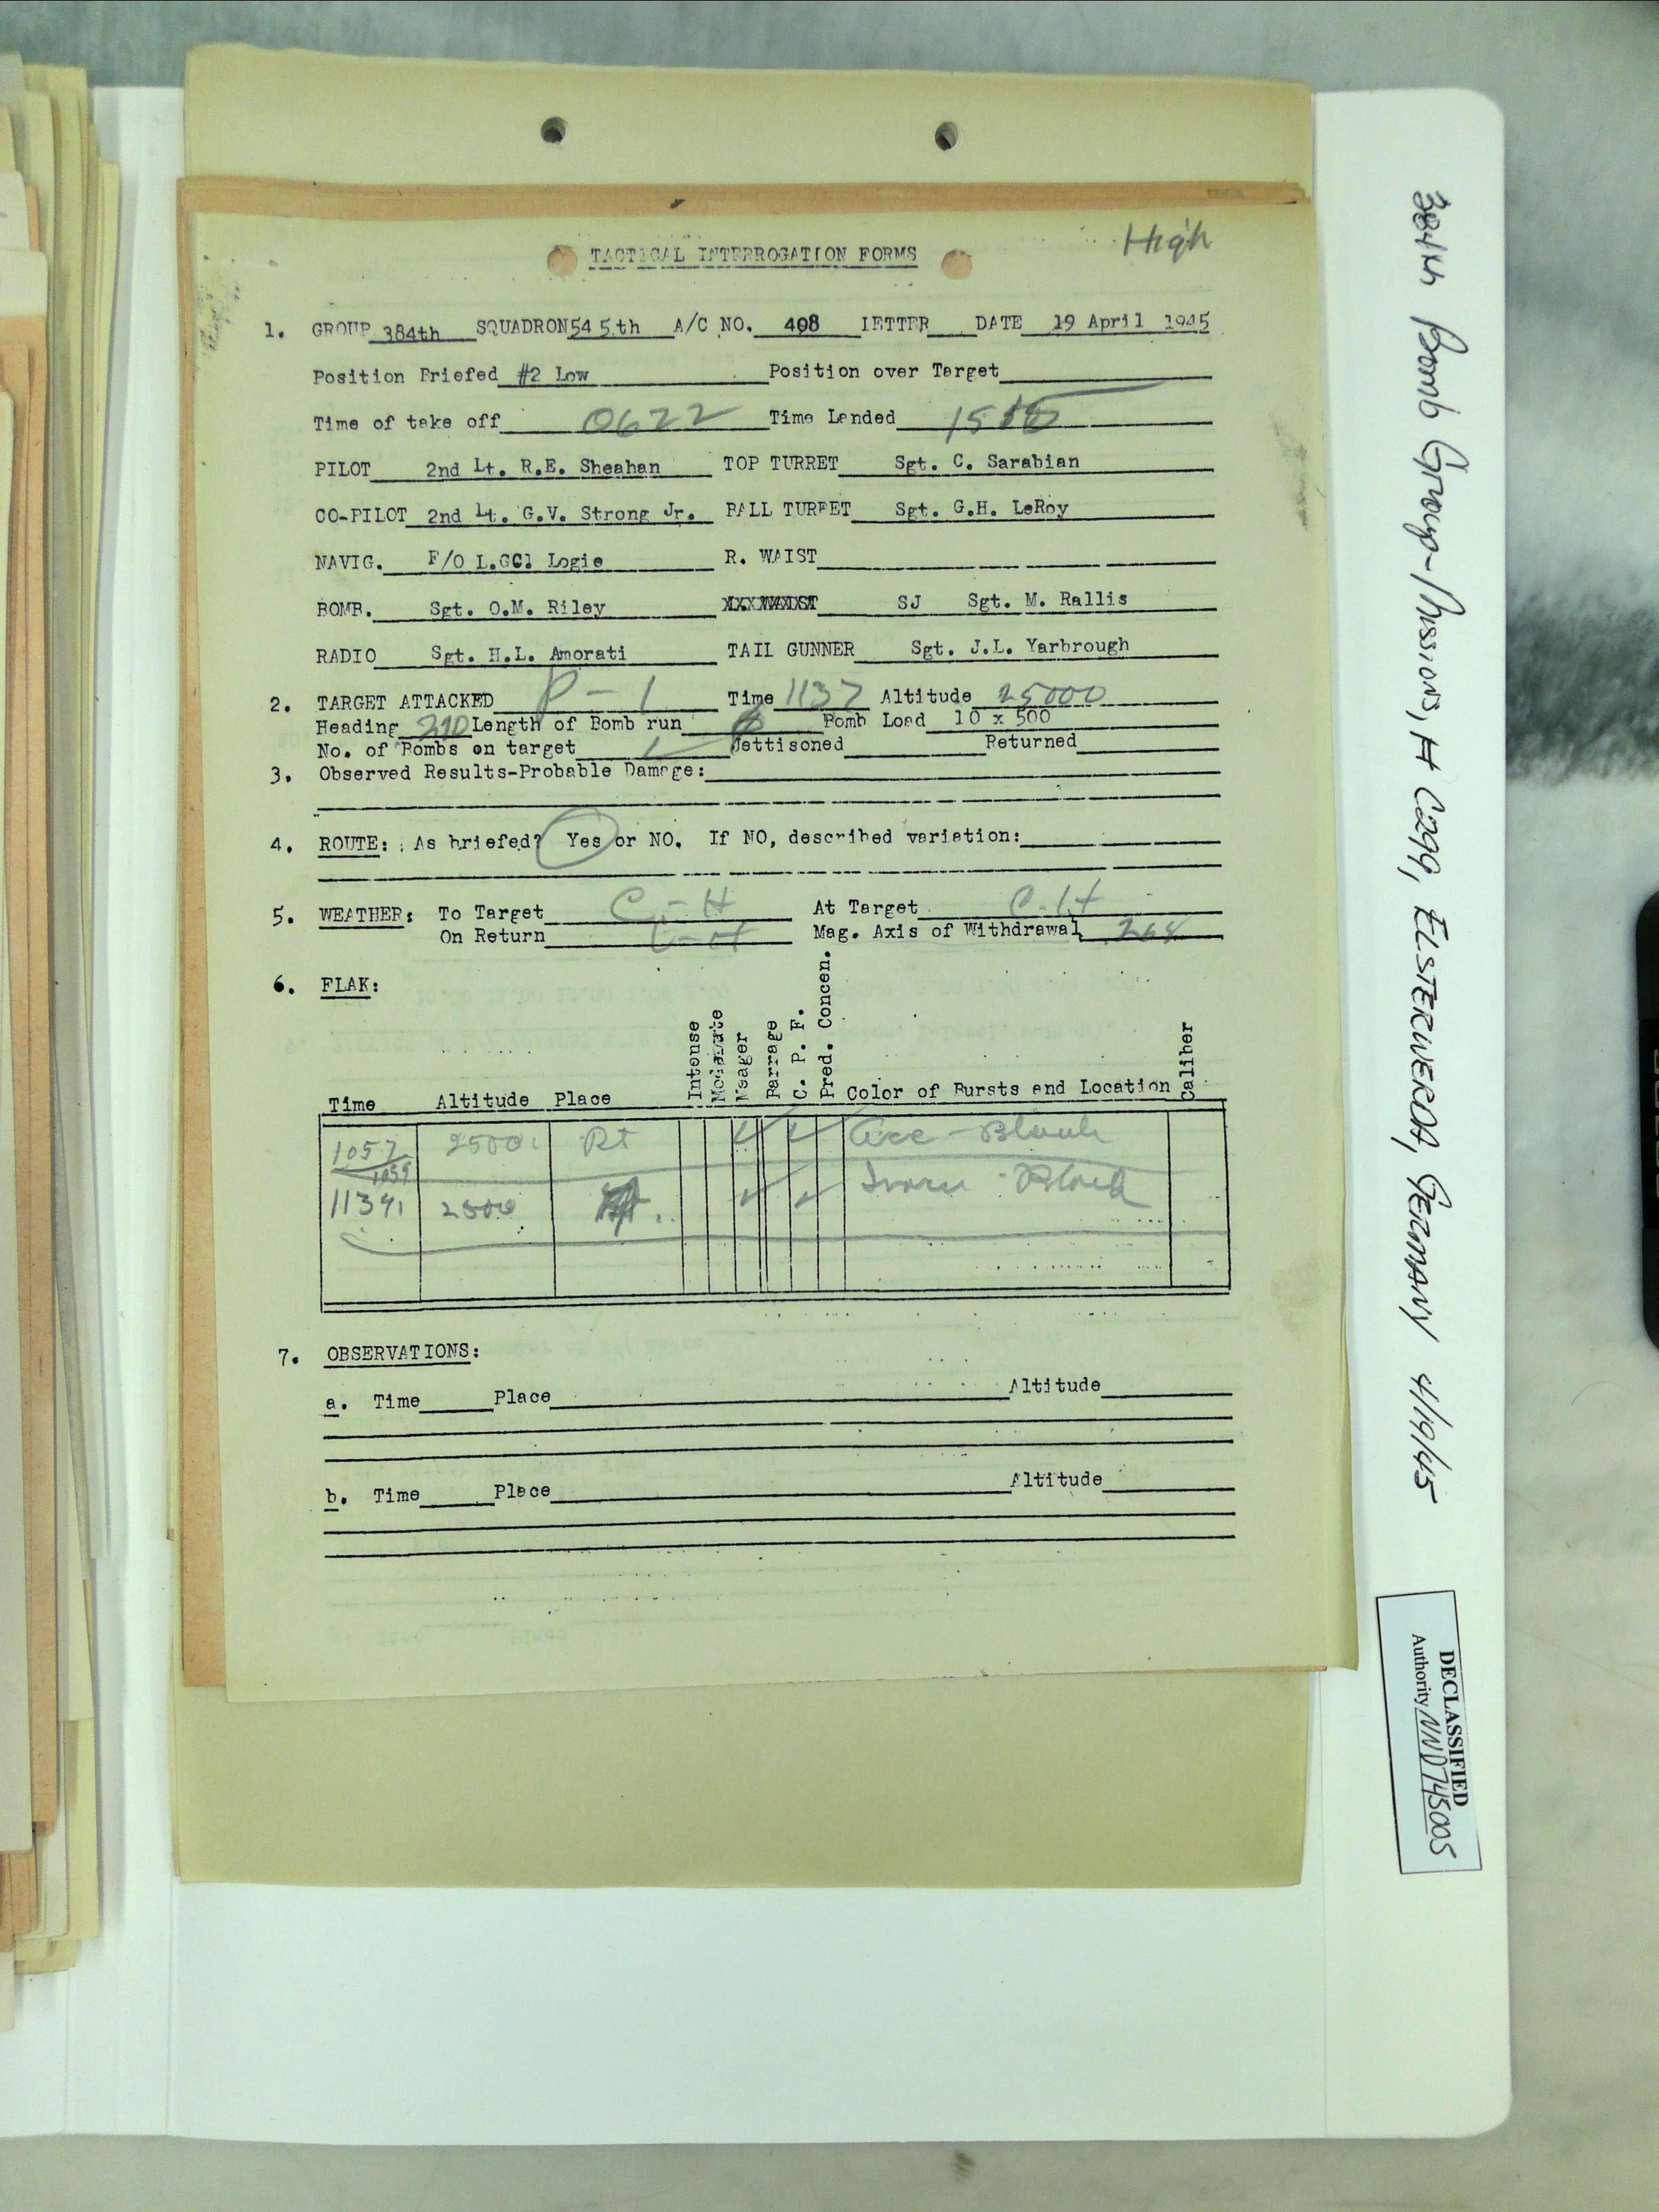 High
TACTICAL INTERROGATION FORMS
1. GROUP 384th SQUADRON 545th A/C NO. 408 LETTER DATE 19 April 1945
Position Briefed #2 Low Position over Target
Time of take off 0622 Time Landed
PILOT 2nd Lt. R.E. Sheahan TOP TURRET Sgt. C. Sarabian
CO-PILOT 2nd Lt. G.V. Strong Jr. BALL TURRET Sgt. G.H. LeRoy
NAVIG. F/O Logie R. WAIST
BOMB. Sgt. O.M. Riley SJ Sgt. M. Rallis
RADIO Sgt. H.L. Amorati TAIL GUNNER Sgt. J.L. Yarbrough
2. TARGET ATTACKED P-1 Time 1137 Altitude 25000
Heading Length of Bomb run Bomb Load 10 x 500
No. of Bombs on target ✓ Jettisoned Returned
3. Observed Results-Probable Damage:
4. ROUTE: As briefed? Yes or NO. If NO, described variation:
5. WEATHER: To Target C-H At Target C-H
On Return Mag. Axis of Withdrawal
6. FLAK:
Time Altitude Place Intense Moderate Meager Barrage C. P. F. Pred. Concen. Color of Bursts and Location Caliber
1057 Rt ✓ ✓ Black
1059
✓ ✓ Black
7. OBSERVATIONS:
a. Time Place Altitude
b. Time Place Altitude
384th Bomb Group-Missions, H C299, ELSTERWERDA, GERMANY 4/19/45
DECLASSIFIED
Authority NND745005